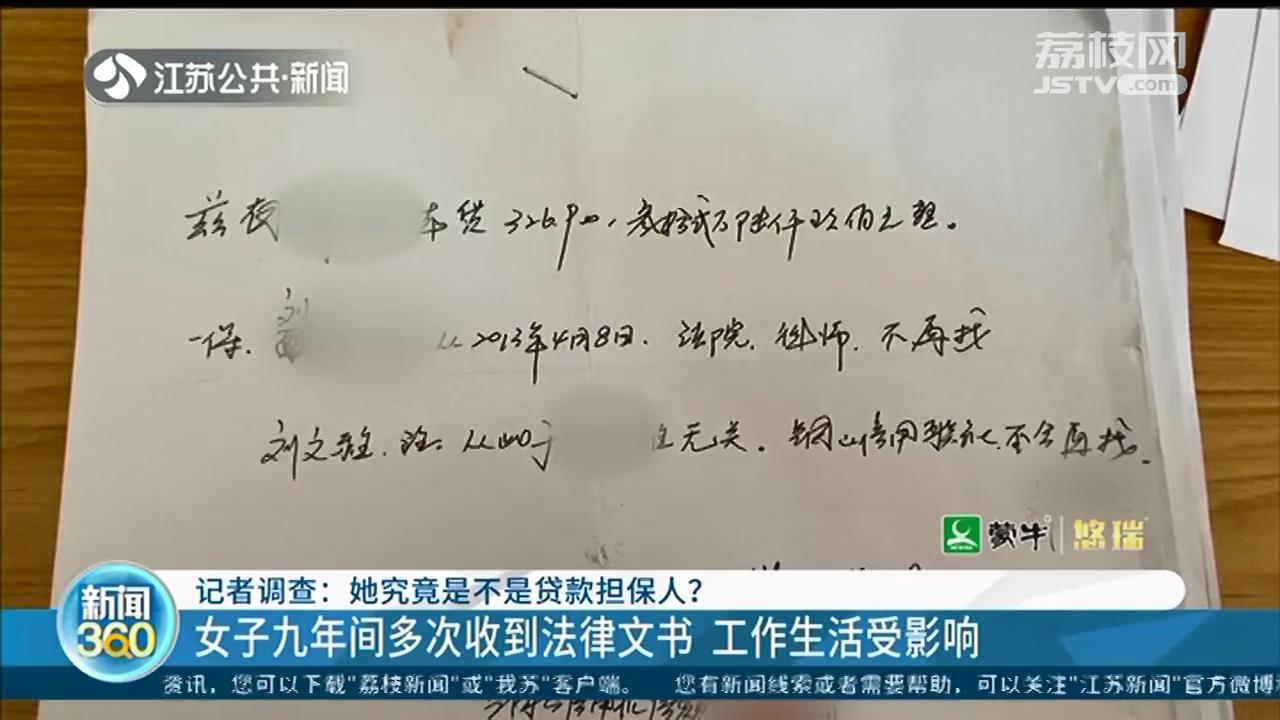 江苏公共·新闻
荔枝网
JSTV.com
兹有 车贷32690,叁拾贰万陆仟玖佰元整。
一保. 刘 从2013年4月8日.法院.律师.不再找
刘文 从 于 无关。铜山信用联社不会再找.
蒙牛 悠瑞
记者调查：她究竟是不是贷款担保人？
新闻360
女子九年间多次收到法律文书 工作生活受影响
资讯，您可以下载"荔枝新闻"或"我苏"客户端。 您有新闻线索或者需要帮助，可以关注"江苏新闻"官方微博